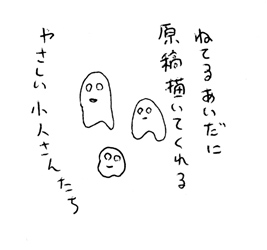 ねてるあいだに
原稿描いてくれる
やさしい小人さんたち